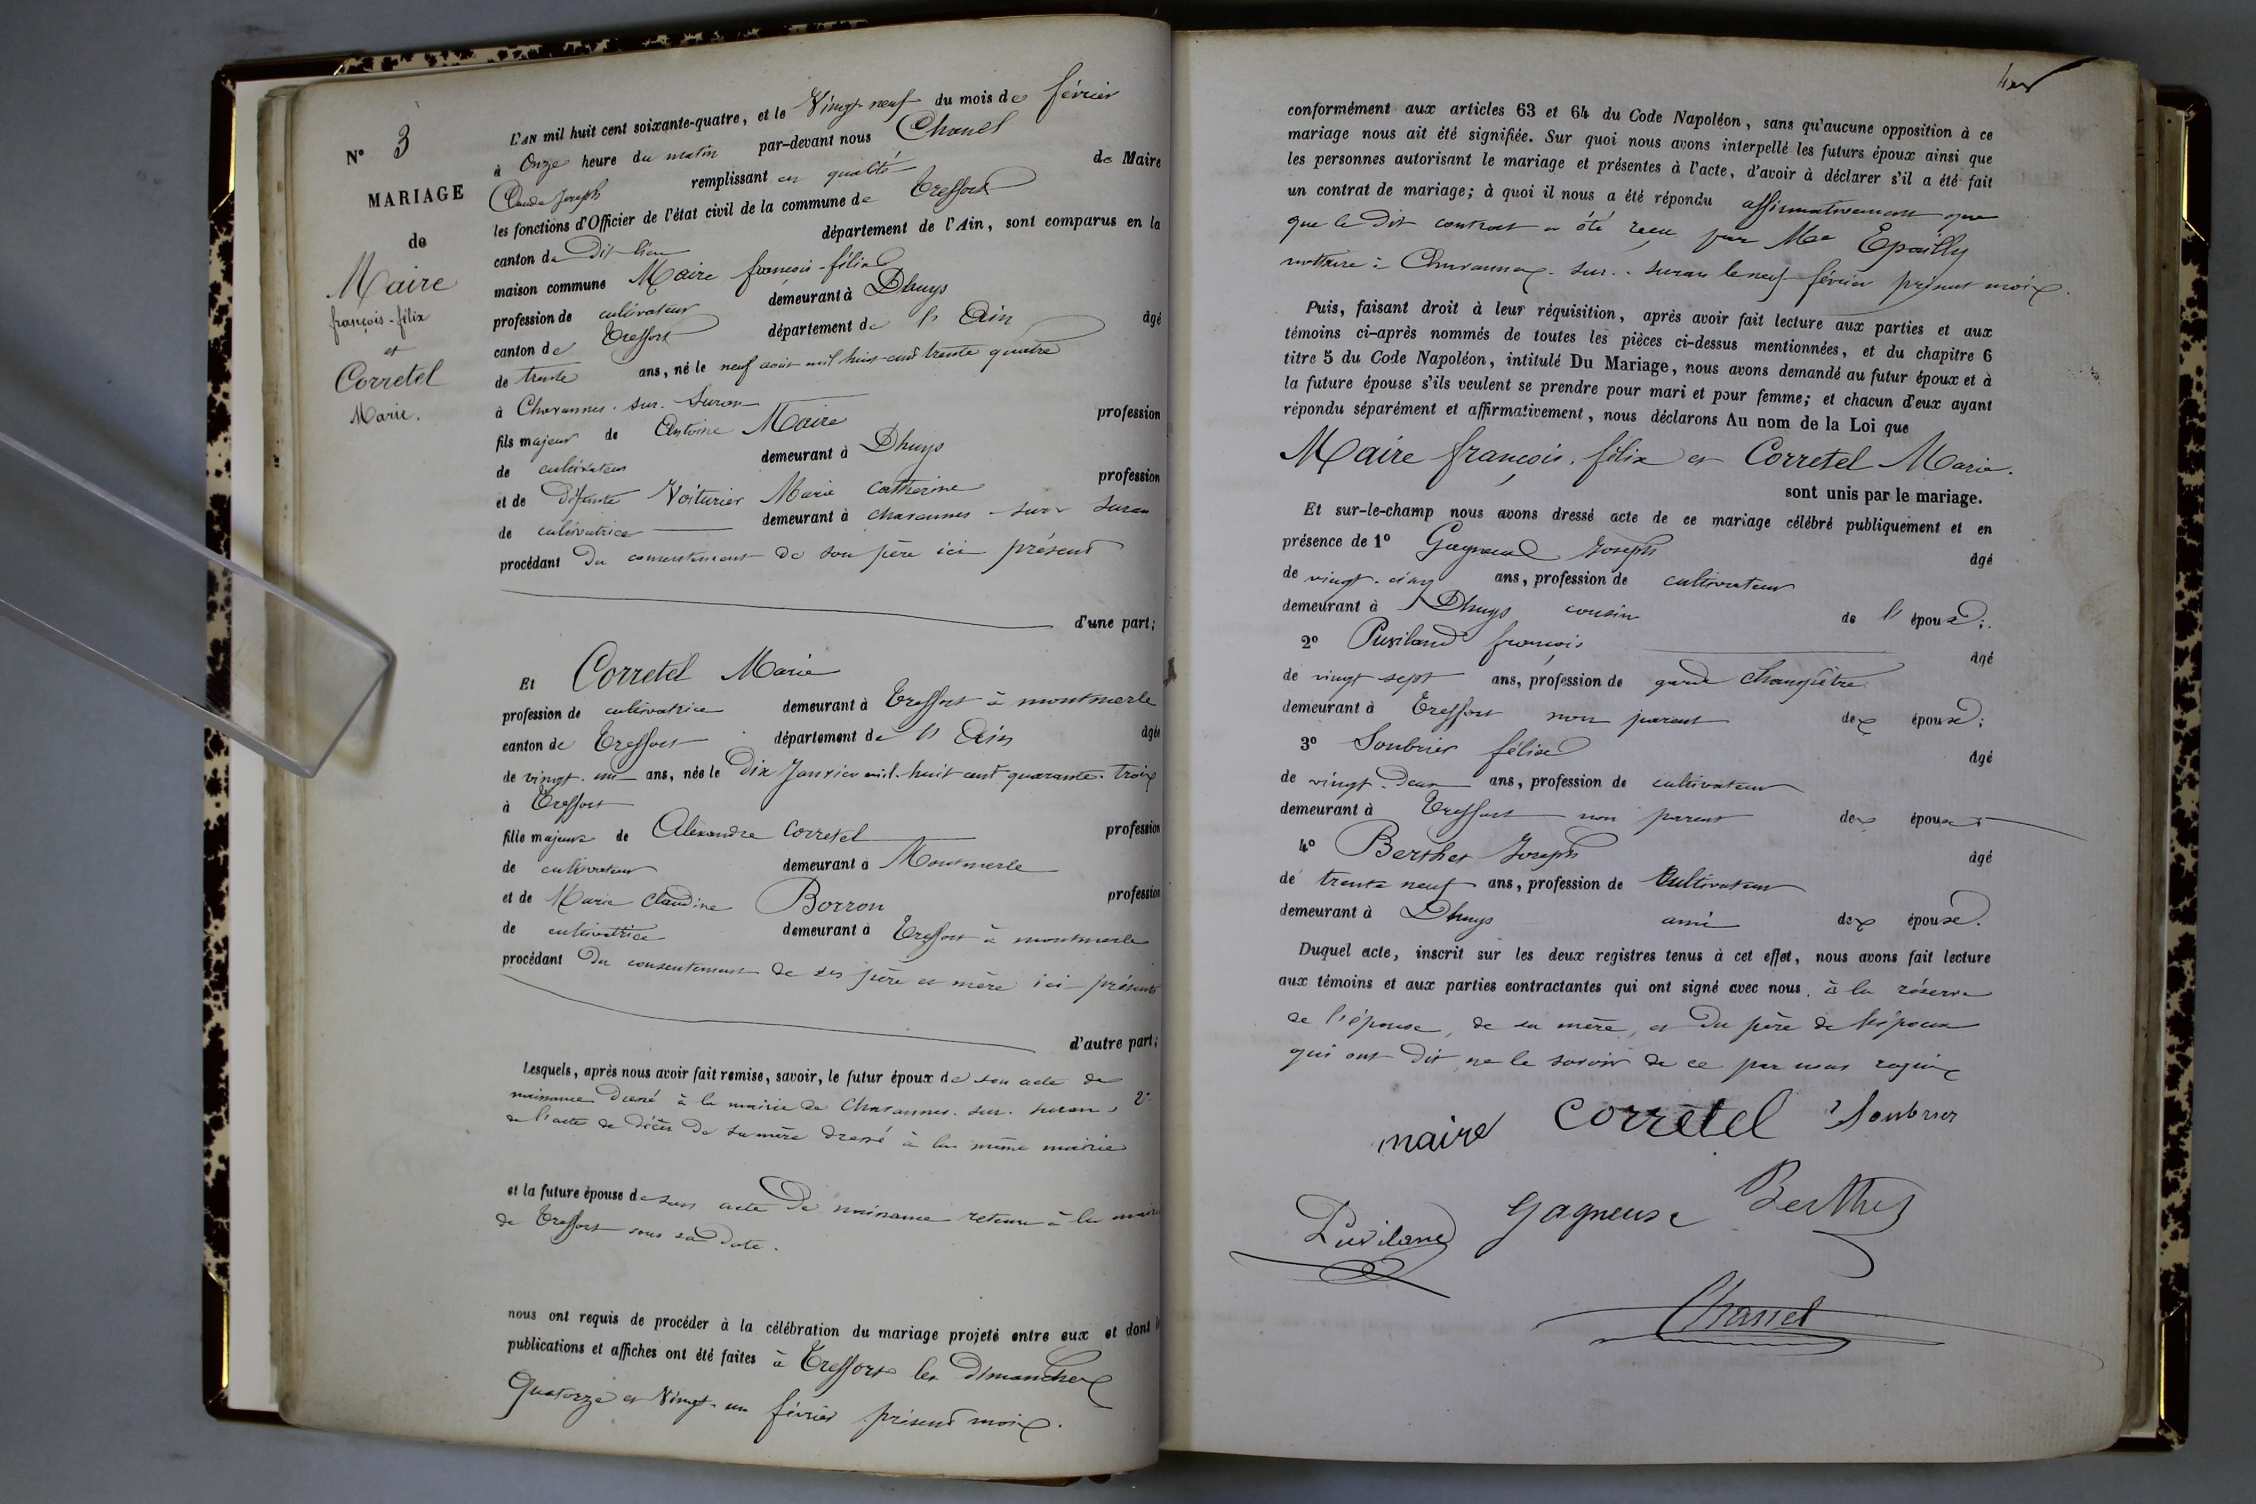 N° 3
MARIAGE
de
Maire
françois-félix
et
Corretel
Marie.
L'AN mil huit cent soixante-quatre, et le Vingt neuf du mois de février
à Onze heure du matin par-devant nous Chanel
Claude Joseph remplissant en qualité de Maire
les fonctions d'Officier de l'état civil de la commune de Treffort
canton de dit lieu département de l'Ain, sont comparus en la
maison commune Maire françois-félix
profession de cultivateur demeurant à Dhuys
canton de Treffort département de l'Ain âgé
de trente ans, né le neuf août mil huit cent trente quatre
à Chavannes-sur-Suran
fils majeur de Antoine Maire profession
de cultivateur demeurant à Dhuys
et de défunte Voiturier Marie Catherine profession
de cultivatrice demeurant à chavannes-sur-Suran
procédant du consentement de son père ici présent
d'une part;
Et Corretel Marie
profession de cultivatrice demeurant à Treffort à montmerle
canton de Treffort département de l'Ain âgée
de vingt-un ans, née le Dix Janvier mil-huit cent quarante-trois
à Treffort
fille majeure de Alexandre Corretel profession
de cultivateur demeurant à Montmerle
et de Marie Claudine Borron profession
de cultivatrice demeurant à Treffort à montmerle
procédant du consentement de ses père et mère ici présents
d'autre part;
Lesquels, après nous avoir fait remise, savoir, le futur époux de son acte de
naissance dressé à la mairie de Chavannes-sur-Suran, 2°
de l'acte de décès de sa mère dressé à la même mairie
et la future épouse de son acte de naissance retenu à la mairie
de Treffort sous sa date.
nous ont requis de procéder à la célébration du mariage projeté entre eux et dont
publications et affiches ont été faites à Treffort les dimanches
Quatorze et Vingt-un février présent mois.
conformément aux articles 63 et 64 du Code Napoléon, sans qu'aucune opposition à ce
mariage nous ait été signifiée. Sur quoi nous avons interpellé les futurs époux ainsi que
les personnes autorisant le mariage et présentes à l'acte, d'avoir à déclarer s'il a été fait
un contrat de mariage; à quoi il nous a été répondu affirmativement que
que le dit contrat a été reçu par Me Epailly
notaire à Chavannes-sur-Suran le neuf février présent mois.
Puis, faisant droit à leur réquisition, après avoir fait lecture aux parties et aux
témoins ci-après nommés de toutes les pièces ci-dessus mentionnées, et du chapitre 6
titre 5 du Code Napoléon, intitulé Du Mariage, nous avons demandé au futur époux et à
la future épouse s'ils veulent se prendre pour mari et pour femme; et chacun d'eux ayant
répondu séparément et affirmativement, nous déclarons Au nom de la Loi que
Maire françois-félix et Corretel Marie.
sont unis par le mariage.
Et sur-le-champ nous avons dressé acte de ce mariage célébré publiquement et en
présence de 1° Joseph âgé
de vingt-cinq ans, profession de cultivateur
demeurant à Dhuys cousin de l'époux;
2° Puviland françois âgé
de vingt sept ans, profession de garde champêtre
demeurant à Treffort non parent des époux;
3° Soubrier félix âgé
de vingt-deux ans, profession de cultivateur
demeurant à Treffort non parent des époux
4° Berthet Joseph âgé
de trente neuf ans, profession de Cultivateur
demeurant à Dhuys ami des époux.
Duquel acte, inscrit sur les deux registres tenus à cet effet, nous avons fait lecture
aux témoins et aux parties contractantes qui ont signé avec nous, à la réserve
de l'épouse, de sa mère, et du père de l'époux
qui ont dit ne le savoir de ce par nous requis
maire Corretel Soubrier
Puviland gagneux Berthet
Chanel